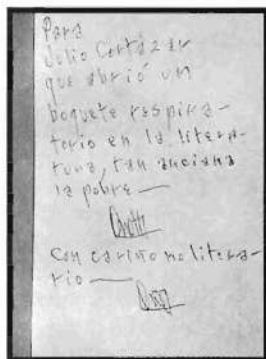 Para
Julio Cortázar
que abrió un
boquete respira-
torio en la litera-
tura, tan anciana
la pobre —
Con cariño no litera-
rio —